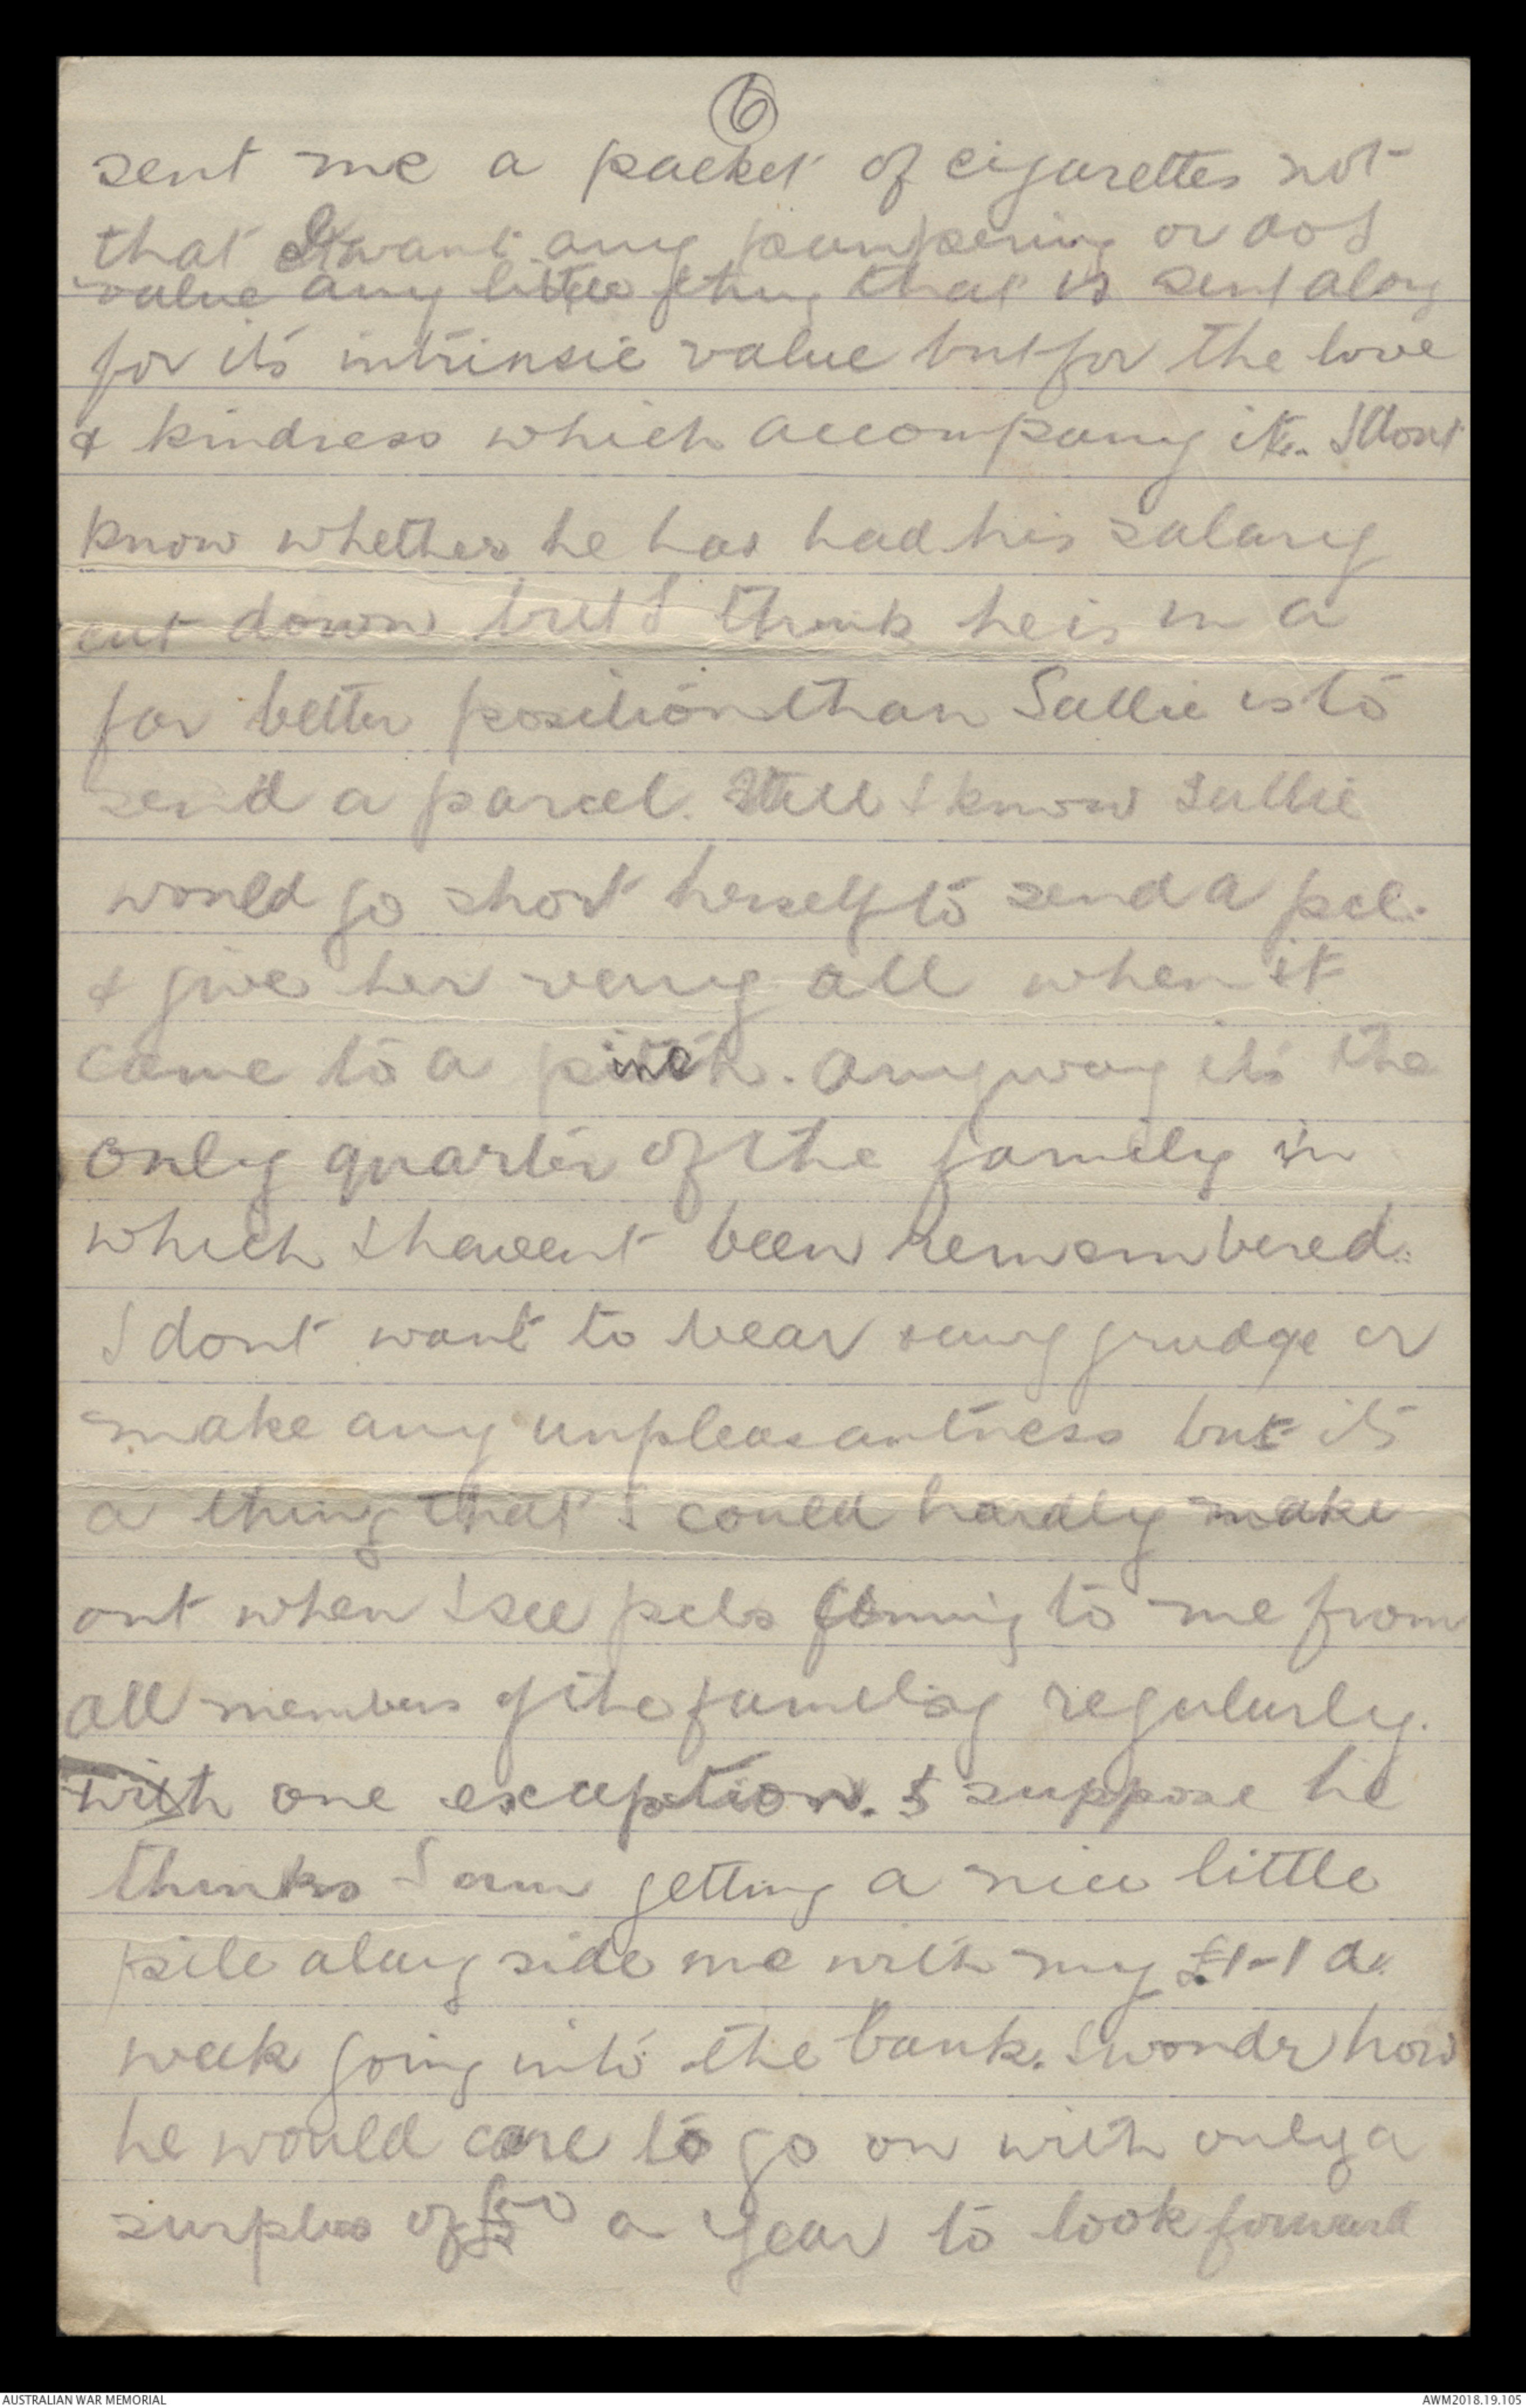 6
sent me a packet of cigarettes not
that I want any pampering or do I
value any little thing that is sent along
for it's intrinsic value but for the love
& kindness which accompany it. I dont
know whether he has had his salary
cut down but I think he is in a
far better position than Sallie is to
send a parcel. Still I know Sallie
would go short herself to send a pcl.
& give her very all when it
came to a pinch. Anyway its the
only quarter of the family in
which I havent been remembered.
I dont want to bear any grudge or
make any unpleasantness but its
a thing that I could hardly make
out when I see pcls coming to me from
all members of the family regularly.
with one exception. I suppose he
thinks I am getting a nice little
pile along side me with my £1-1 a
week going into the bank. I wondr how
he would care to go on with only a
surplus of £50 a year to look forward
AUSTRALIAN WAR MEMORIAL
AWM2018.19.105